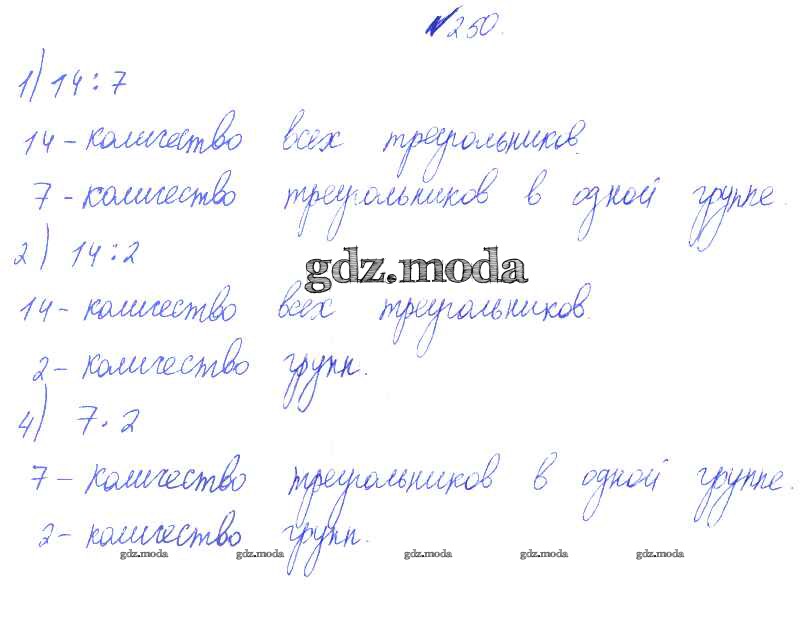 №250.
1) 14:7
14 - количество всех треугольников.
7 - количество треугольников в одной группе.
2) 14:2
gdz.moda
14 - количество всех треугольников.
2 - количество групп.
4) 7·2
7 - количество треугольников в одной группе.
2 - количество групп.
gdz.moda gdz.moda gdz.moda gdz.moda gdz.moda